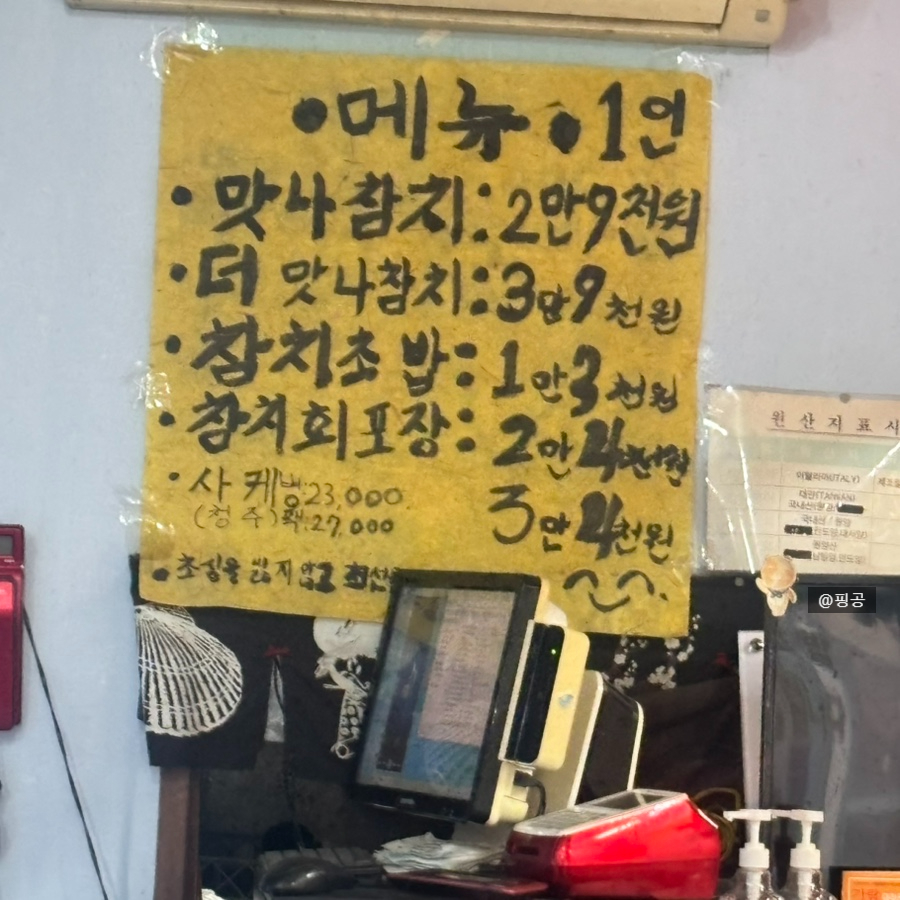 •메뉴 •1인
• 맛나참치: 2만9천원
• 더 맛나참치: 3만9천원
• 참치초밥: 1만3천원
• 참치회포장: 2만4천원
3만4천원
• 사케병:23,000
(청주)팩:27,000
• 초심을 잃지 않고 최선
원산지표시
이탈리아(ITALY)
대만(TAIWAN)
국내산
국내산 / 원양
원양산
@핑공